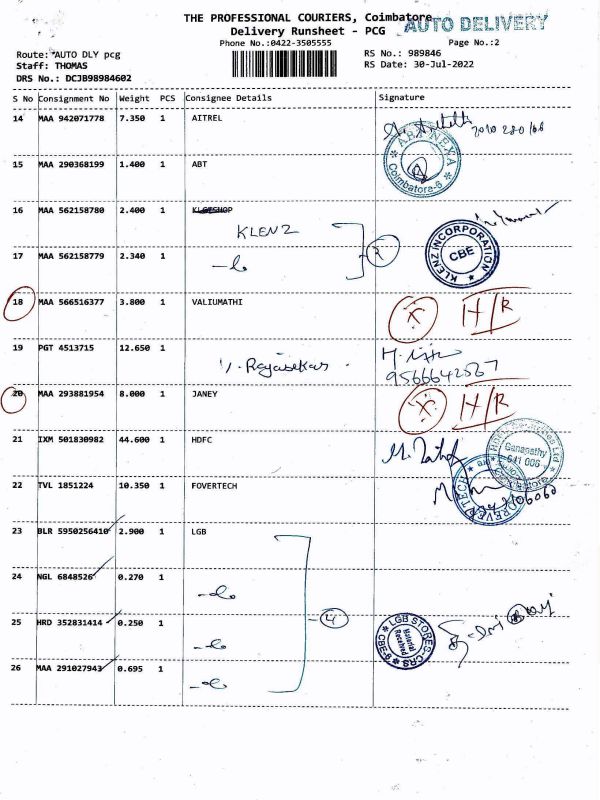 THE PROFESSIONAL COURIERS, Coimbatore
AUTO DELIVERY
Delivery Runsheet - PCG
Phone No.:0422-3505555
Page No.:2
Route: *AUTO DLY pcg
RS No.: 989846
Staff: THOMAS
RS Date: 30-Jul-2022
DRS No.: DCJB98984602
S No Consignment No Weight PCS Consignee Details Signature
14 MAA 942071778 7.350 1 AITREL
ABT NEXA
Coimbatore-6
15 MAA 290368199 1.400 1 ABT
16 MAA 562158780 2.400 1
KLENZ
2
KLENZ INCORPORATION
CBE
17 MAA 562158779 2.340 1
18 MAA 566516377 3.800 1 VALIUMATHI
X H/R
19 PGT 4513715 12.650 1
Rajasekar
9566642567
20 MAA 293881954 8.000 1 JANEY
X H/R
21 IXM 501830982 44.600 1 HDFC
Ganapathy
641 006
22 TVL 1851224 10.350 1 FOVERTECH
23 BLR 5950256410 2.900 1 LGB
24 NGL 6848526 0.270 1
-do
4
25 HRD 352831414 0.250 1
-do
LGB STORES-CRS
Material
Received
CBE-6
26 MAA 291027943 0.695 1
-do